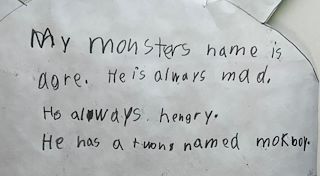 My monsters name is
agre. He is always mad.
He always. hengry.
He has a named mokboy.